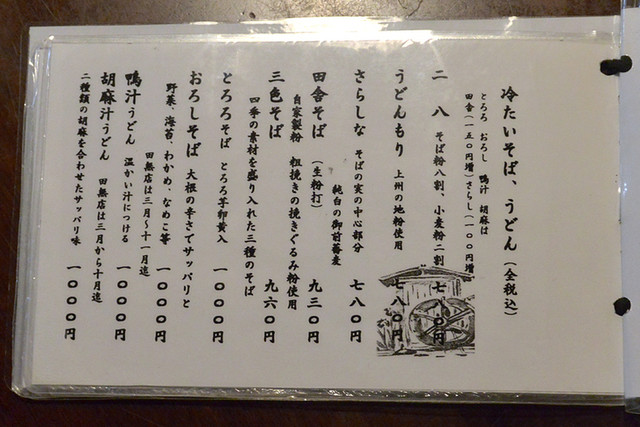 冷たいそば、うどん（全税込）
とろろ おろし 鴨汁 胡麻は
田舎（一五〇円増）さらし（一〇〇円増）
二 八 そば粉八割、小麦粉二割 七八〇円
うどんもり 上州の地粉使用 七八〇円
さらしな そばの実の中心部分 七八〇円
純白の御前蕎麦
田舎そば （生粉打） 九三〇円
自家製粉 粗挽きの挽きぐるみ粉使用
三色そば 九六〇円
四季の素材を盛り入れた三種のそば
とろろそば とろろ芋卵黄入 一〇〇〇円
おろしそば 大根の辛さでサッパリと
野菜、海苔、わかめ、なめこ等 一〇〇〇円
田無店は三月〜十一月迄
鴨汁うどん 温かい汁につける 一〇〇〇円
胡麻汁うどん 田無店は三月から十月迄
二種類の胡麻を合わせたサッパリ味 一〇〇〇円